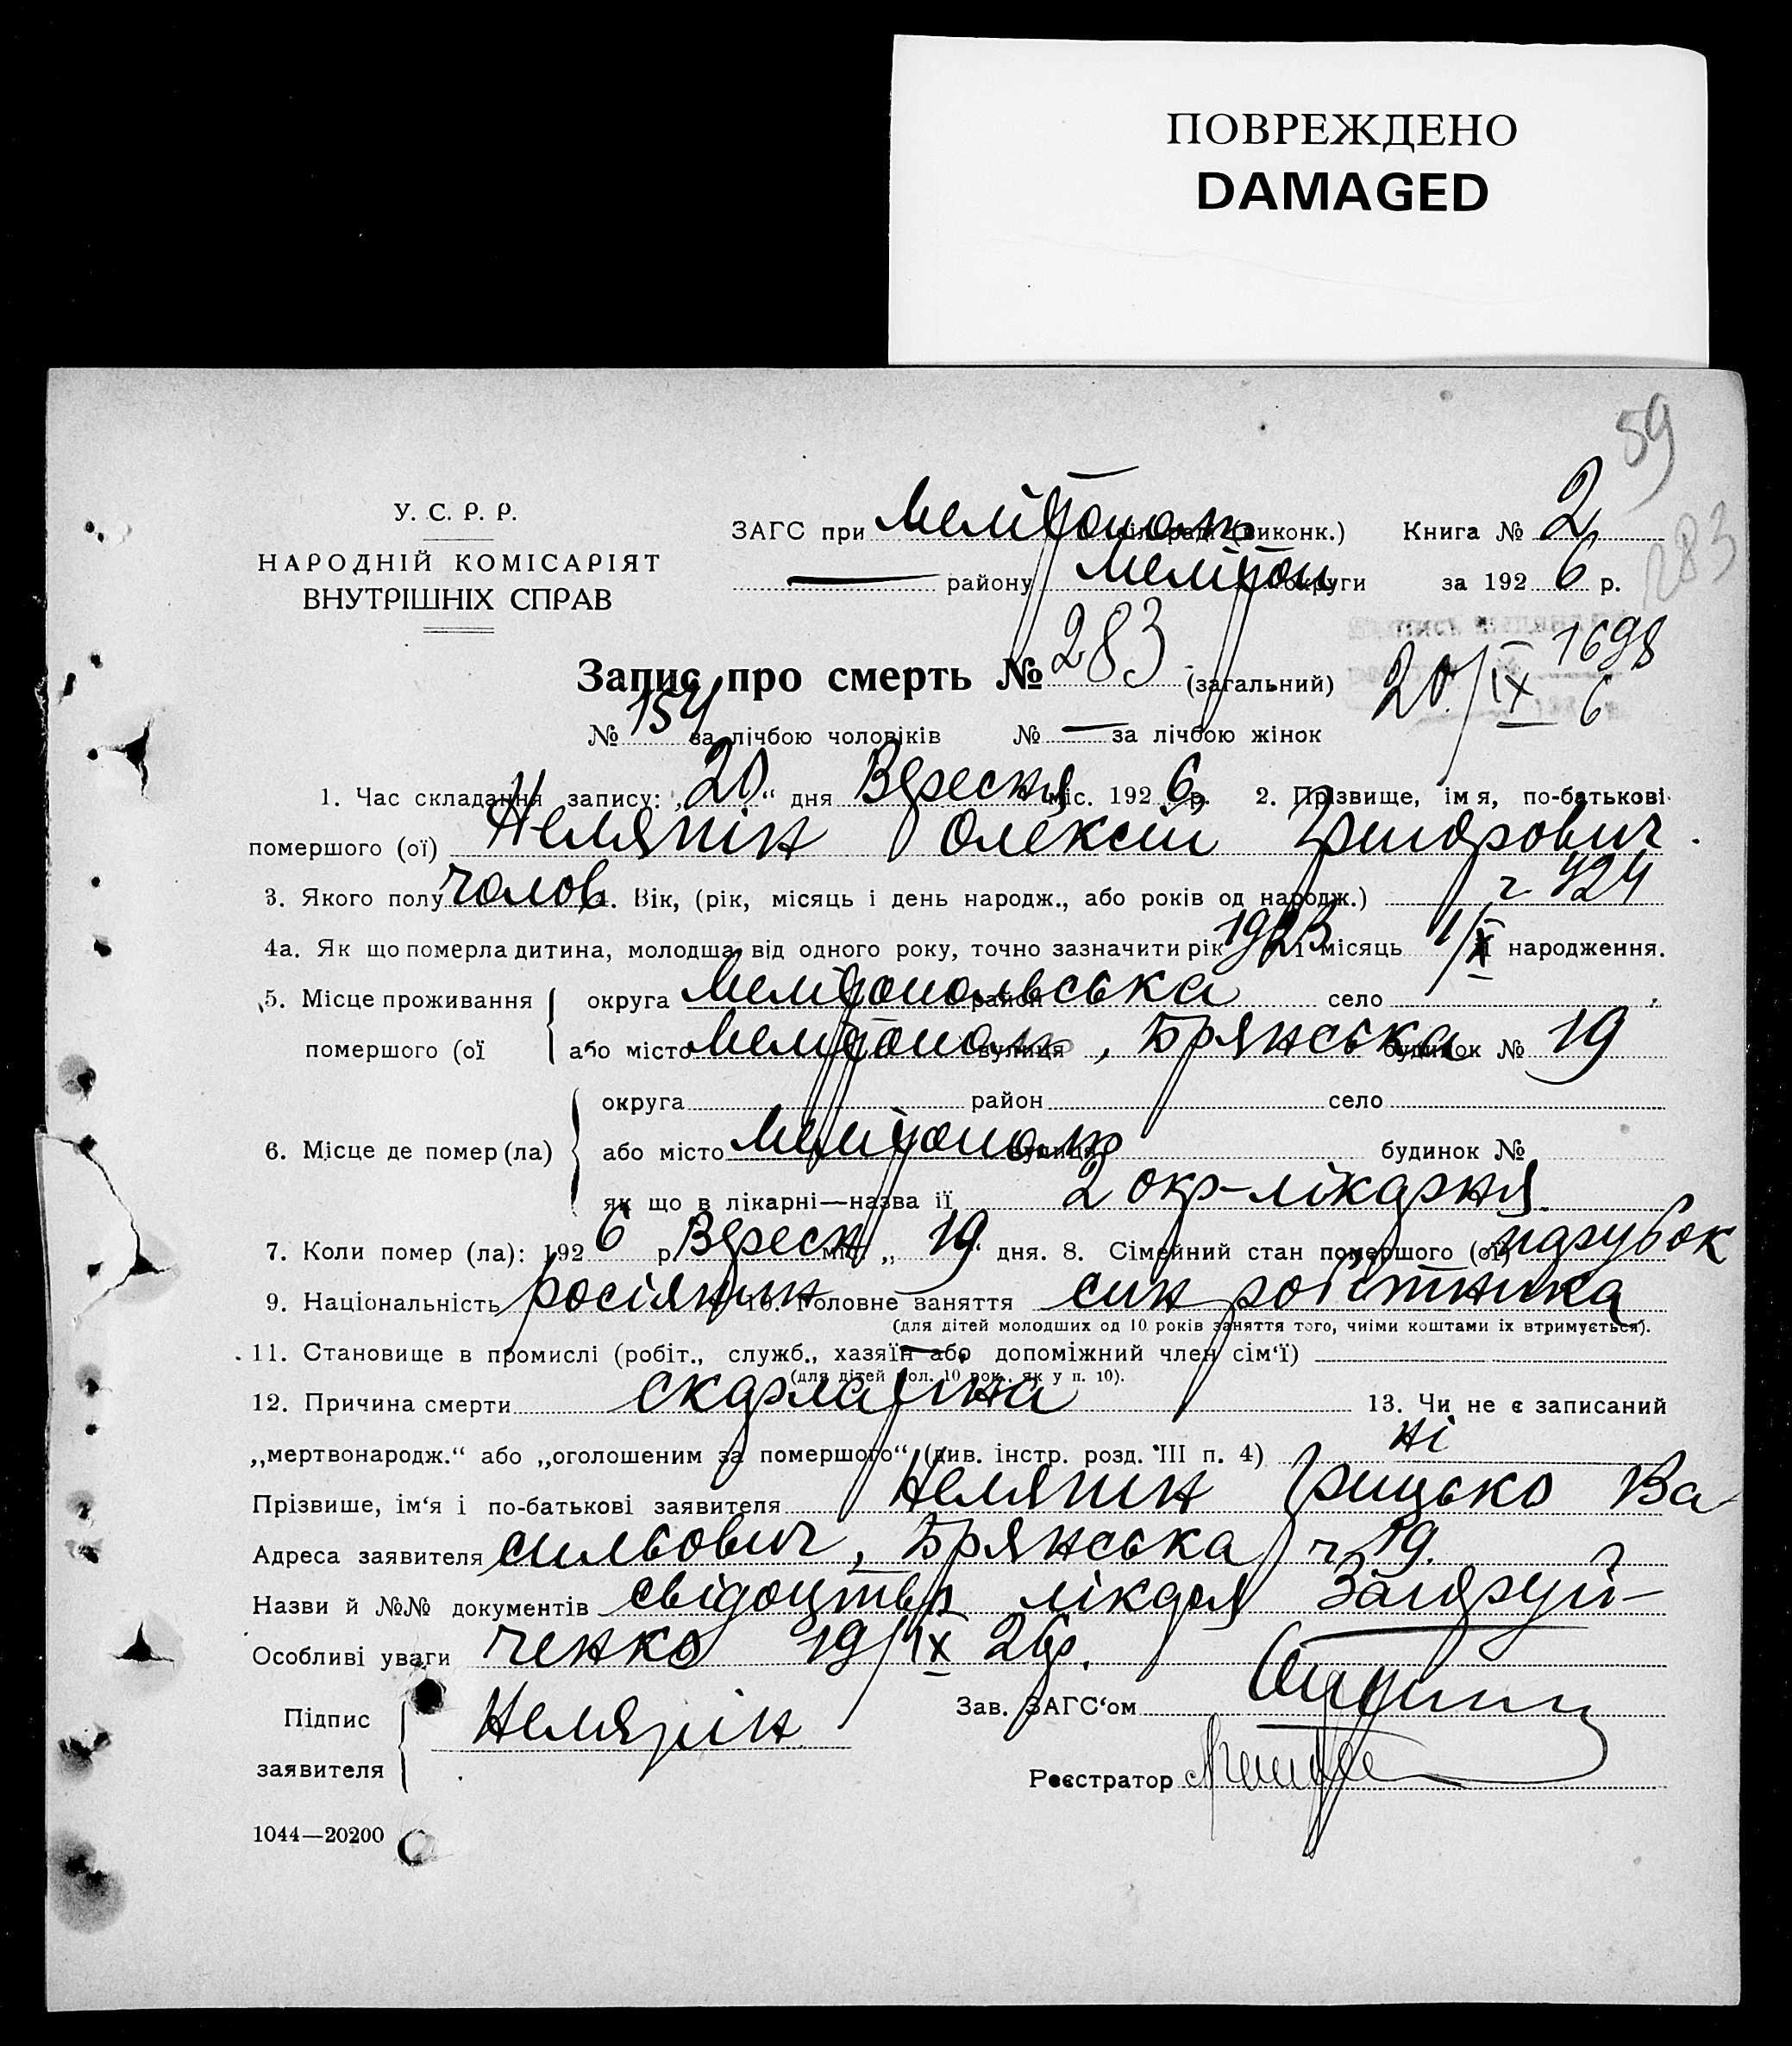 ПОВРЕЖДЕНО
DAMAGED
59
283
У. С. Р. Р.
НАРОДНІЙ КОМІСАРІЯТ
ВНУТРІШНІХ СПРАВ
ЗАГС при Мелітополь (виконк.) Книга № 2
— району Меліtop округи за 1926 р.
Запис про смерть № 283 (загальний)
20/IX 6 1698
№ 154 за лічбою чоловіків № — за лічбою жінок
1. Час складання запису: „20“ дня Вересня міс. 1926 р. 2. Прізвище, імя, по-батькові
помершого (ої) Неляпін Олексій Григорович.
3. Якого полу чолов. Вік, (рік, місяць і день народж., або років од народж.)
4а. Як що померла дитина, молодша від одного року, точно зазначити рік 1923 і місяць народження.
5. Місце проживання округа Мелітопольська район село
помершого (ої або місто Мелітополь вулиця, Брянська будинок № 19
округа район село
6. Місце де помер (ла) або місто Мелітополь вулиця будинок №
як що в лікарні—назва її 2 окр-лікарня.
7. Коли помер (ла): 1926 р. Вересн міс. „19“ дня. 8. Сімейний стан помершого (ої) парубок
9. Національність росіянин 10. Головне заняття син робітника
(для дітей молодших од 10 років заняття того, чиїми коштами іх втримується).
11. Становище в промислі (робіт., служб., хазяїн або допоміжний член сім‘ї)
(для дітей мол. 10 рок., як у п. 10).
12. Причина смерти скарлатина 13. Чи не є записаний
„мертвонародж.“ або „оголошеним за помершого“ (див. інстр. розд. III п. 4) ні
Прізвише, ім‘я і по-батькові заявителя Неляпин Грицько Ва
Адреса заявителя сильович, Брянська ч 19.
Назви й №№ документів свідоцтво лікаря
Особливі уваги ченко 19/IX 26р.
Підпис
заявителя
Неляпін
Зав. ЗАГС‘ом
Реєстратор
1044—20200